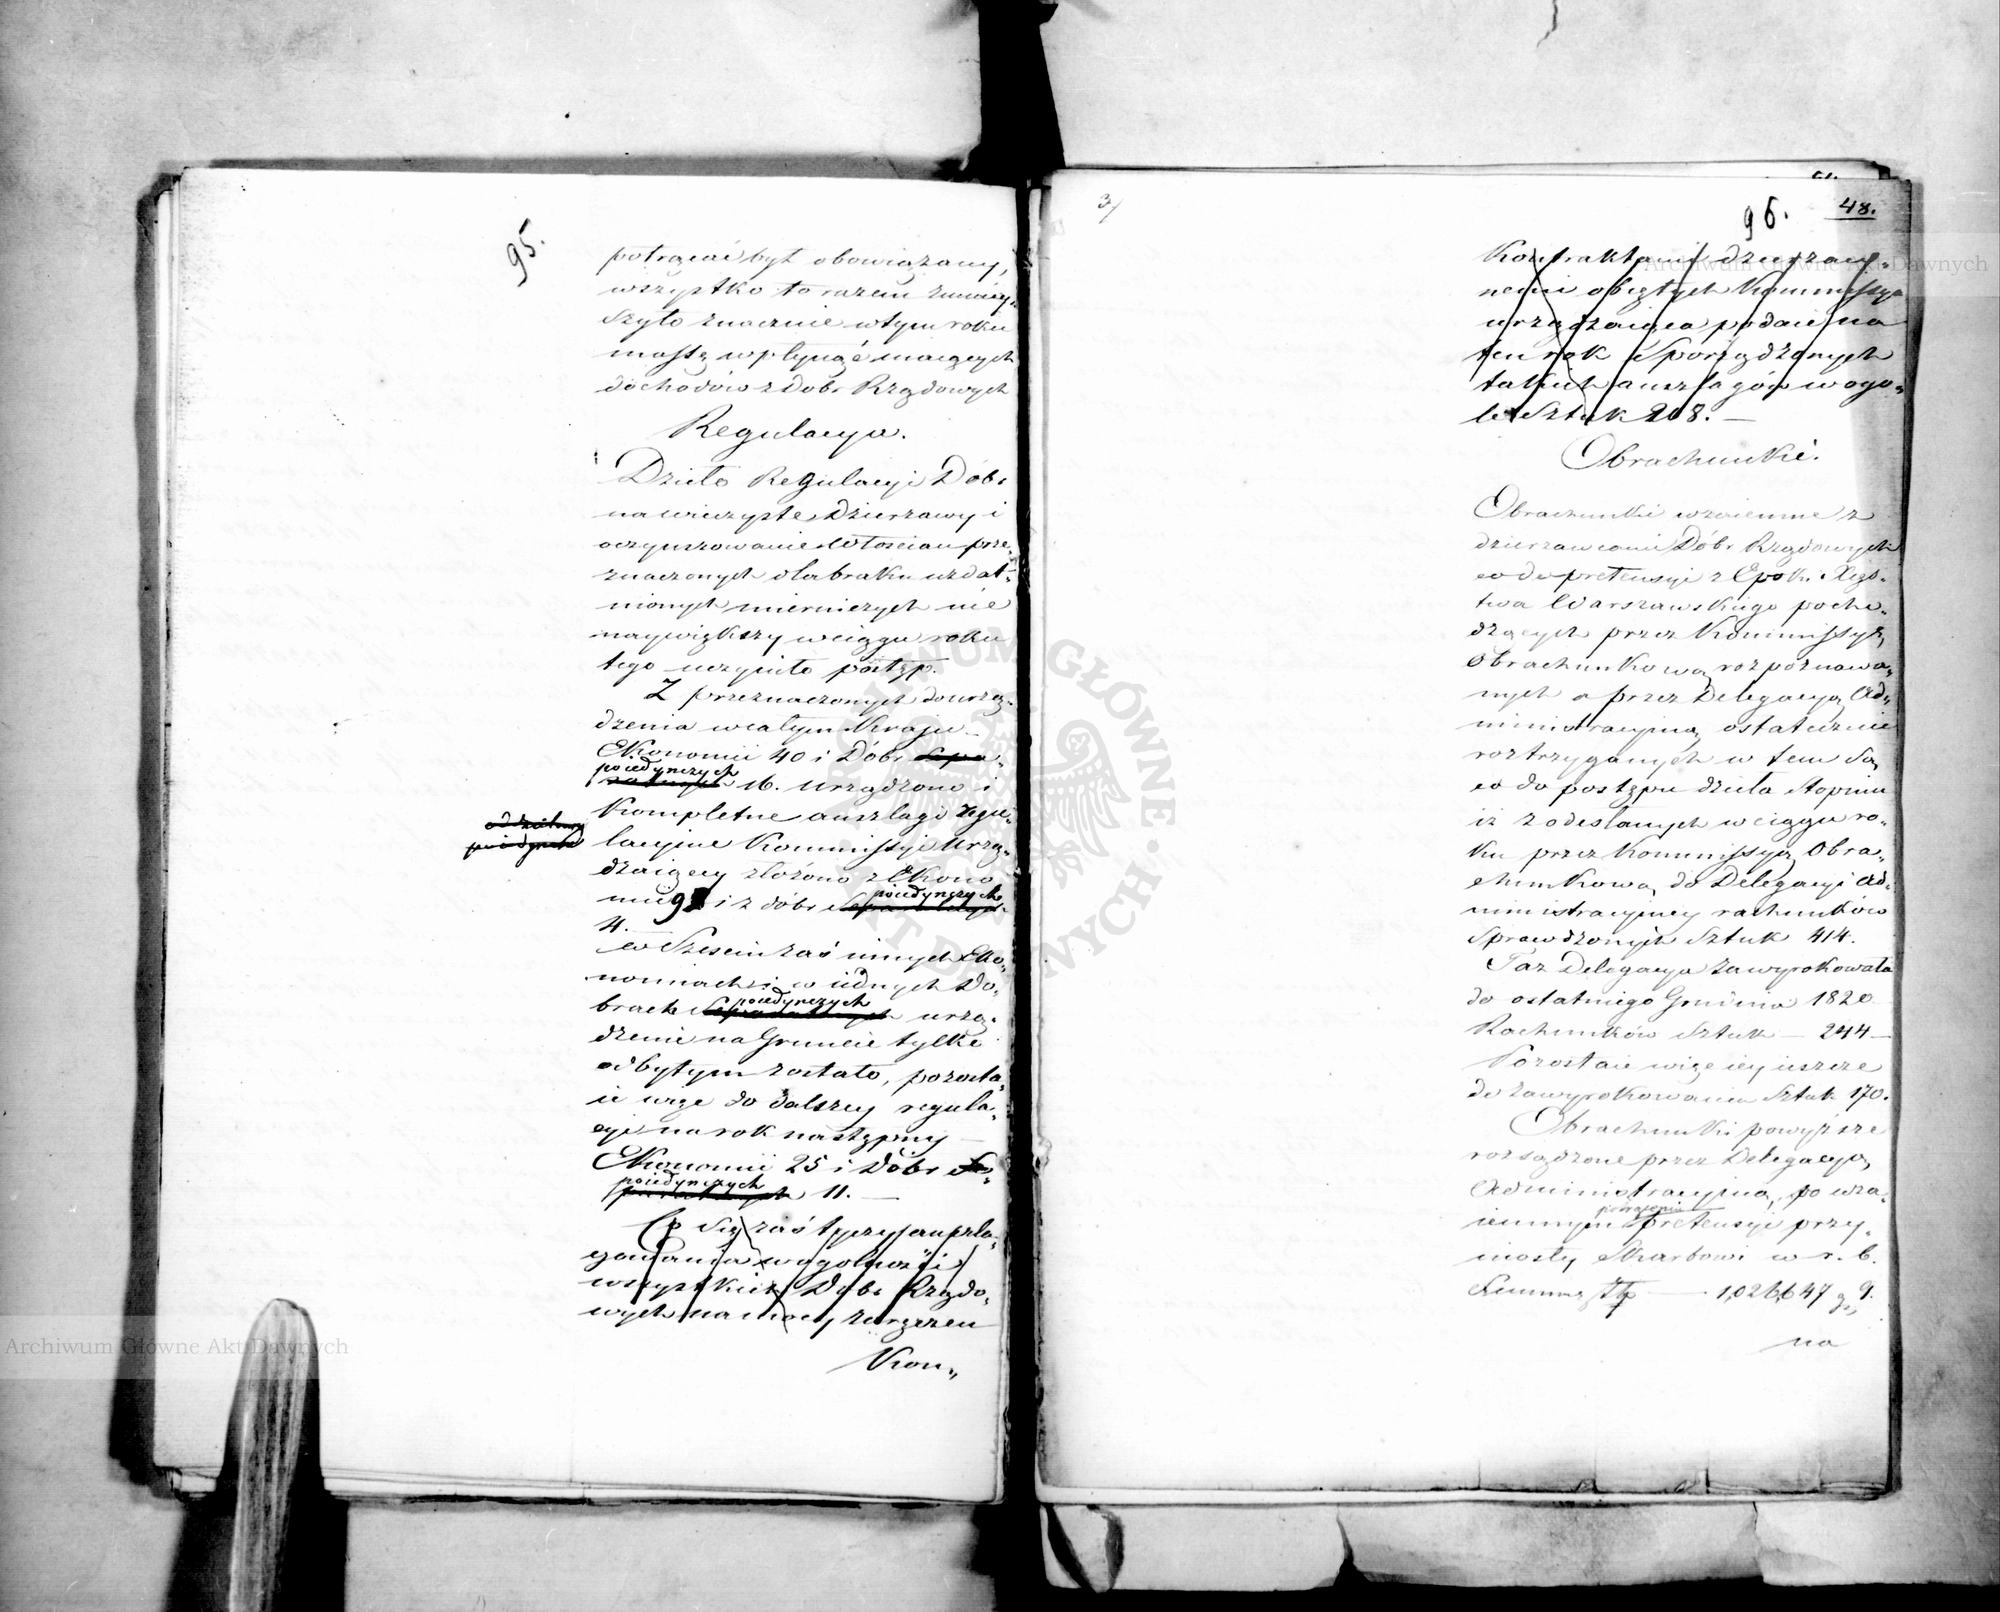 95.
potrącać był obowiązany,
wszystko to razem zmniey„
szyło znacznie w tym roku
massę wpłynąć maiących
dochodów z Dobr Rządowych
Regulacya.
Dzieło Regulacyi Dóbr
na wieczyste Dzierzawy i
oczynszowanie Włościan prze„
znaczonych dla braku uzdat„
nionych mierniczych nie
naywiększy w ciągu roku
tego uczyniło postęp.
Z przeznaczonych do urzą„
dzenia w całym Kraju
Ekonomii 40 i Dóbr Sepa„
poiedynczych
ratnych 16. urządzono i
Kompletne anszlagi regu„
oddzielnie
poiedyncze
lacyine Kommissyi Urzą„
dzaiącey złożono z Ekono
poiedynczych
mii 9 i z dóbr Separatnych
4.
w Sześciu zaś innych Eko„
nomiach i w iednych Do„
poiedynczych
brach Separatnych urzą„
dzenie na Gruncie tylko
odbytym zostało, pozosta„
ie więc do dalszey regula„
cyi na rok następny
Ekonomii 25 i Dóbr Se„
poiedynczych
paratnych 11. —
Co się zaś tycze anszla„
gowania w ogolności
wszystkich Dóbr Rządo„
wych na mocy zwrzeń
Kon„
3/
96.
48.
Kontraktami dzierzaw„
nemi obiętych Kommissya
urządzaiąca podaie na
ten rok Sporządzonych
takich anszlagów w ogo„
le Sztuk 208. —
Obrachunki.
Obrachunki wzaiemne z
dzierzawcami Dóbr Rządowych
co do pretensyi z Epoki Xięs„
twa Warszawskiego pocho„
dzących przez Kommissyą
Obrachunkową rozpoznawa„
nych a przez Delegacyą Ad„
ministracyiną ostatecznie
roztrzyganych w tem są
co do postępu dzieła Stopniu
iż z odesłanych w ciągu ro„
ku przez Kommissyą Obra„
chunkową do Delegacyi Ad„
ministracyiney rachunków
Sprawdzonych Sztuk 414.
Taż Delegacya zawyrokowała
do ostatniego Grudnia 1820
Rachunków Sztuk — 244 —
Pozostaie więc iey ieszcze
do zawyrokowania Sztuk 170.
Obrachunki powyższe
rozsądzone przez Delegacyą
Administracyiną, po wza„
potrąceniu
iemnym pretensyi przy„
niosły Skarbowi w r. b.
Summę złp — 1,026,647 gr. 9.
na
Archiwum Główne Akt Dawnych
Archiwum Główne Akt Dawnych
ARCHIWUM GŁÓWNE AKT DAWNYCH